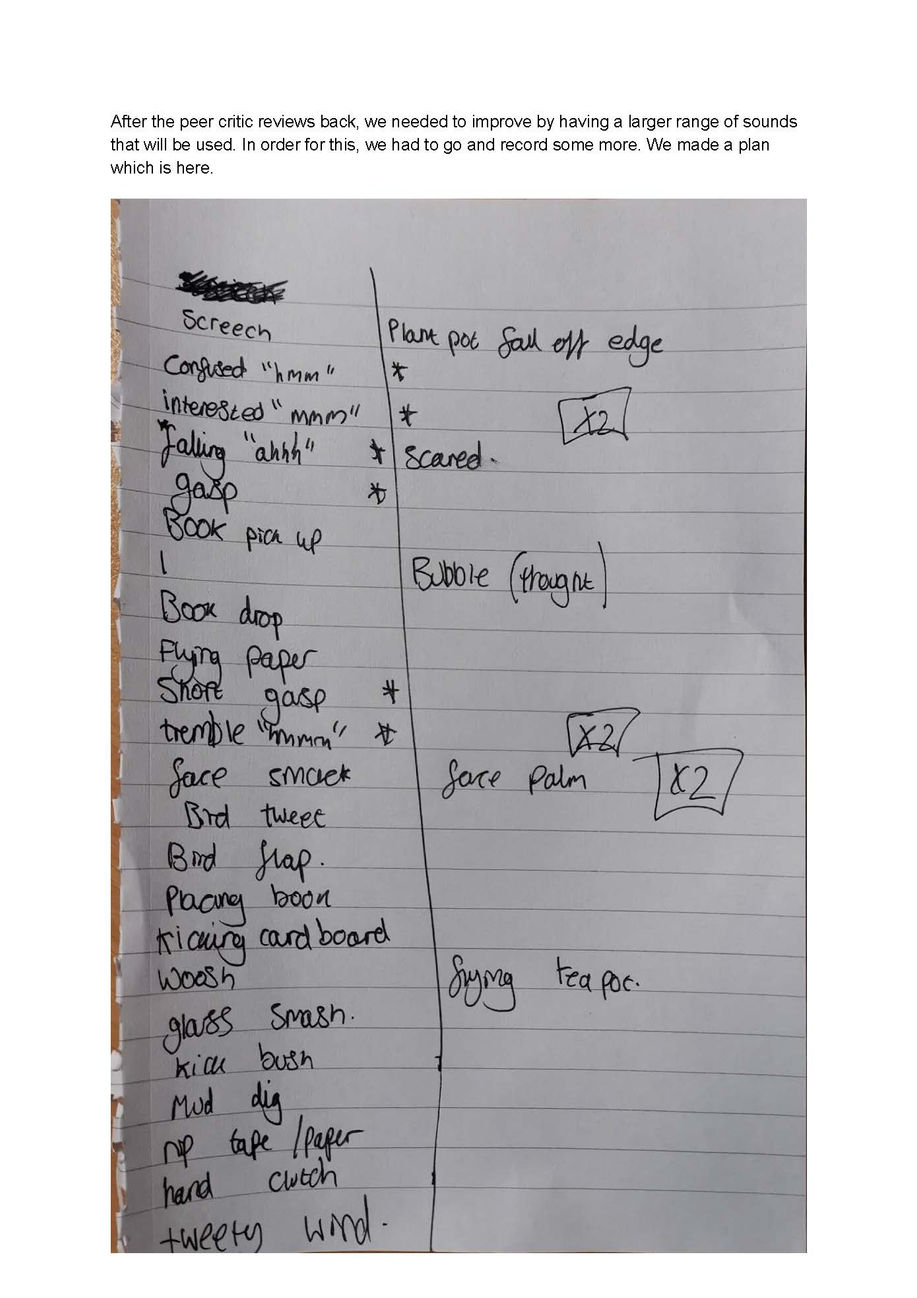 After the peer critic reviews back, we needed to improve by having a larger range of sounds
that will be used. In order for this, we had to go and record some more. We made a plan
which is here.
Screech Plant pot fall off edge
Confused "hmm" *
interested "mmm" * X2
*falling "ahhh" * Scared.
gasp *
Book pick up
| Bubble (thought)
Book drop
Flying paper
Short gasp *
tremble "hmmm" * X2
face smack face palm X2
Bird tweet
Bird flap.
Placing book
Kicking cardboard
Woosh flying tea pot.
glass smash.
kick bush
Mud dig
rip tape / paper
hand clutch
tweety wind.